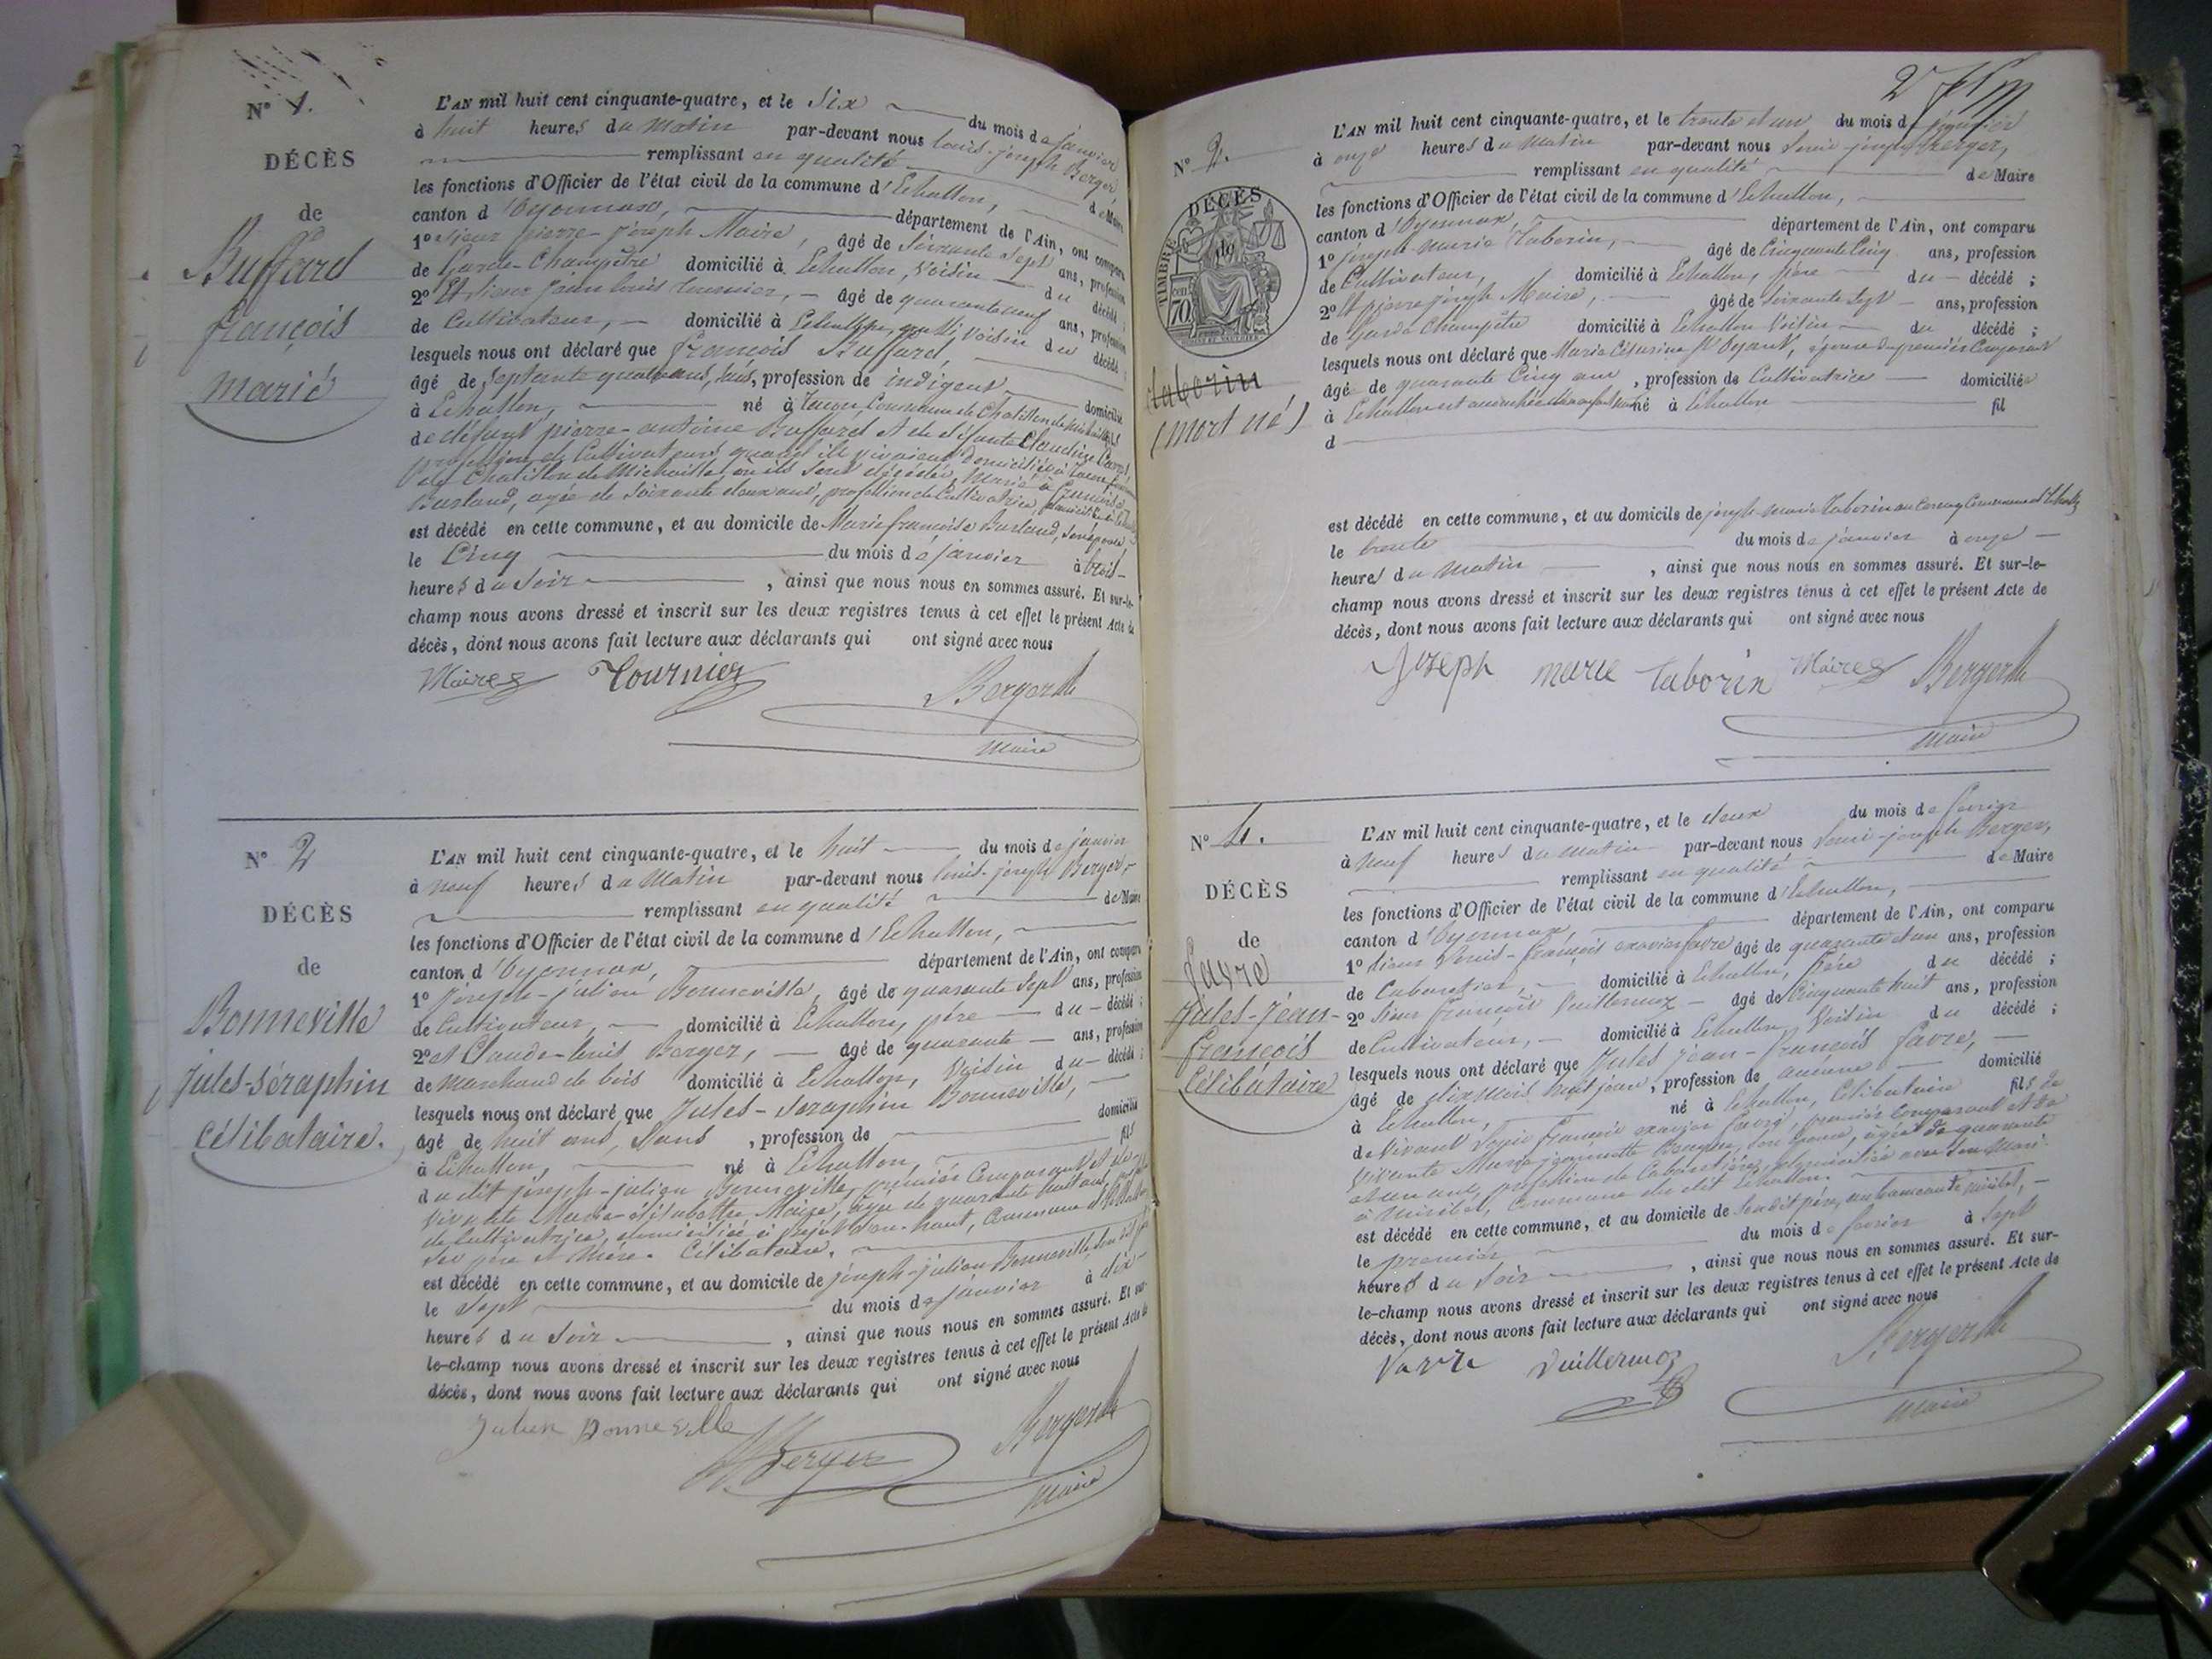 N° 1.
DÉCÈS
de
Buffard
françois
marié
L'AN mil huit cent cinquante-quatre, et le Six du mois de janvier
à huit heures du Matin par-devant nous louis-joseph Berger
remplissant en qualité de Maire
les fonctions d'Officier de l'état civil de la commune d'Echallon,
canton d'Oyonnax, département de l'Ain, ont comparu
1° Sieur pierre-joseph Maire, âgé de Soixante Sept ans, profession
de Garde-Champêtre domicilié à Echallon, Voisin du décédé ;
2° Et Sieur jean louis Tournier, âgé de quarante neuf ans, profession
de Cultivateur, domicilié à Echallon, Voisin du décédé ;
lesquels nous ont déclaré que françois Buffard,
âgé de Septante quatre ans, Sans, profession de indigent domicilié
à Echallon, né à Commune de Chatillon de Michaille fils
de défunt pierre-antoine Buffard et de défunte Claudine
profession de Cultivateurs quand ils vivaient Domiciliés à
de Chatillon de Michaille où ils sont décédés, Marié à françoise
Burland, agée de Soixante deux ans, profession de Cultivatrice,
est décédé en cette commune, et au domicile de Marie françoise Burland, Son épouse
le Cinq du mois de janvier à trois
heures du Soir, ainsi que nous nous en sommes assuré. Et sur-le-
champ nous avons dressé et inscrit sur les deux registres tenus à cet effet le présent Acte de
décès, dont nous avons fait lecture aux déclarants qui ont signé avec nous
Maire Tournier Berger
Maire
N° 2
DÉCÈS
de
Bonneville
jules-séraphin
Célibataire.
L'AN mil huit cent cinquante-quatre, et le huit du mois de janvier
à neuf heures du Matin par-devant nous louis-joseph Berger
remplissant en qualité de Maire
les fonctions d'Officier de l'état civil de la commune d'Echallon,
canton d'Oyonnax, département de l'Ain, ont comparu
1° joseph-julien Bonneville, âgé de quarante Sept ans, profession
de Cultivateur, domicilié à Echallon, père du décédé ;
2° et Claude-louis Berger, âgé de quarante ans, profession
de Marchand de bois domicilié à Echallon, Voisin du décédé ;
lesquels nous ont déclaré que jules-Séraphin Bonneville,
âgé de huit ans, Sans, profession de domicilié
à Echallon, né à Echallon, fils
du dit joseph-julien Bonneville, premier Comparant et de
vivante Marie élisabethe Maire, agée de quarante huit ans,
de Cultivatrice, domiciliée à haut, Commune d'Echallon
Ses père et Mère. Célibataire.
est décédé en cette commune, et au domicile de joseph-julien Bonneville, Son dit père
le Sept du mois de janvier à dix
heures du Soir, ainsi que nous nous en sommes assuré. Et sur-
le-champ nous avons dressé et inscrit sur les deux registres tenus à cet effet le présent Acte de
décès, dont nous avons fait lecture aux déclarants qui ont signé avec nous
Julien Bonneville
Berger Berger
Maire
N° 2.
DÉCÈS
de
TIMBRE
70 cent
taborin
(mort né)
L'AN mil huit cent cinquante-quatre, et le trente et un du mois de janvier
à onze heures du Matin par-devant nous Louis-joseph Berger,
remplissant en qualité de Maire
les fonctions d'Officier de l'état civil de la commune d'Echallon,
canton d'Oyonnax, département de l'Ain, ont comparu
1° joseph-marie Taborin, âgé de Cinquante Cinq ans, profession
de Cultivateur, domicilié à Echallon, père du décédé ;
2° Et pierre joseph Maire, âgé de Soixante Sept ans, profession
de Garde Champêtre domicilié à Echallon Voisin du décédé ;
lesquels nous ont déclaré que Marie Césarine St Oyant, épouse du premier Comparant
âgé de quarante Cinq ans, profession de Cultivatrice domiciliée
à Echallon est accouchée né à Echallon fil
d
est décédé en cette commune, et au domicile de joseph-marie Taborin Commune d'Echallon
le trente du mois de janvier à onze
heures du Matin, ainsi que nous nous en sommes assuré. Et sur-le-
champ nous avons dressé et inscrit sur les deux registres tenus à cet effet le présent Acte de
décès, dont nous avons fait lecture aux déclarants qui ont signé avec nous
Joseph marie taborin Maire Berger
Maire
N° 4.
DÉCÈS
de
favre
Jules-Jean-
françois
Célibataire
L'AN mil huit cent cinquante-quatre, et le deux du mois de février
à neuf heures du matin par-devant nous Louis-joseph Berger,
remplissant en qualité de Maire
les fonctions d'Officier de l'état civil de la commune d'Echallon,
canton d'Oyonnax, département de l'Ain, ont comparu
1° Sieur Louis-françois exavier favre âgé de quarante et un ans, profession
de Cabaretier, domicilié à Echallon, père du décédé ;
2° Sieur françois Vuillermoz âgé de Cinquante huit ans, profession
de Cultivateur, domicilié à Echallon, Voisin du décédé ;
lesquels nous ont déclaré que Jules Jean-françois favre,
âgé de dix mois huit jours, profession de aucune domicilié
à Echallon, né à Echallon, Célibataire fils de
de Vivant Louis françois exavier favre, premier Comparant et de
vivante Marie jeannette son épouse, agée de quarante
et un ans, profession de Cabaretière, domiciliée avec Son Mari
à Miribel, Commune du dit Echallon.
est décédé en cette commune, et au domicile de Son dit père, au hameau de Miribel,
le premier du mois de février à Sept
heures du Soir, ainsi que nous nous en sommes assuré. Et sur-
le-champ nous avons dressé et inscrit sur les deux registres tenus à cet effet le présent Acte de
décès, dont nous avons fait lecture aux déclarants qui ont signé avec nous
favre Vuillermoz Berger
Maire